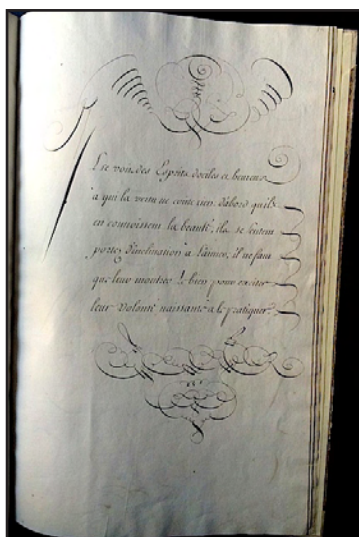 Je vois des Esprits dociles et heureux
a qui la vertu ne coute rien d'abord qu'ils
en connoissent la beauté, ils se sentent
portez d'inclination a l'aimer, il ne faut
que leur montrer le bien pour exciter
leur volonté naissante a le pratiquer.